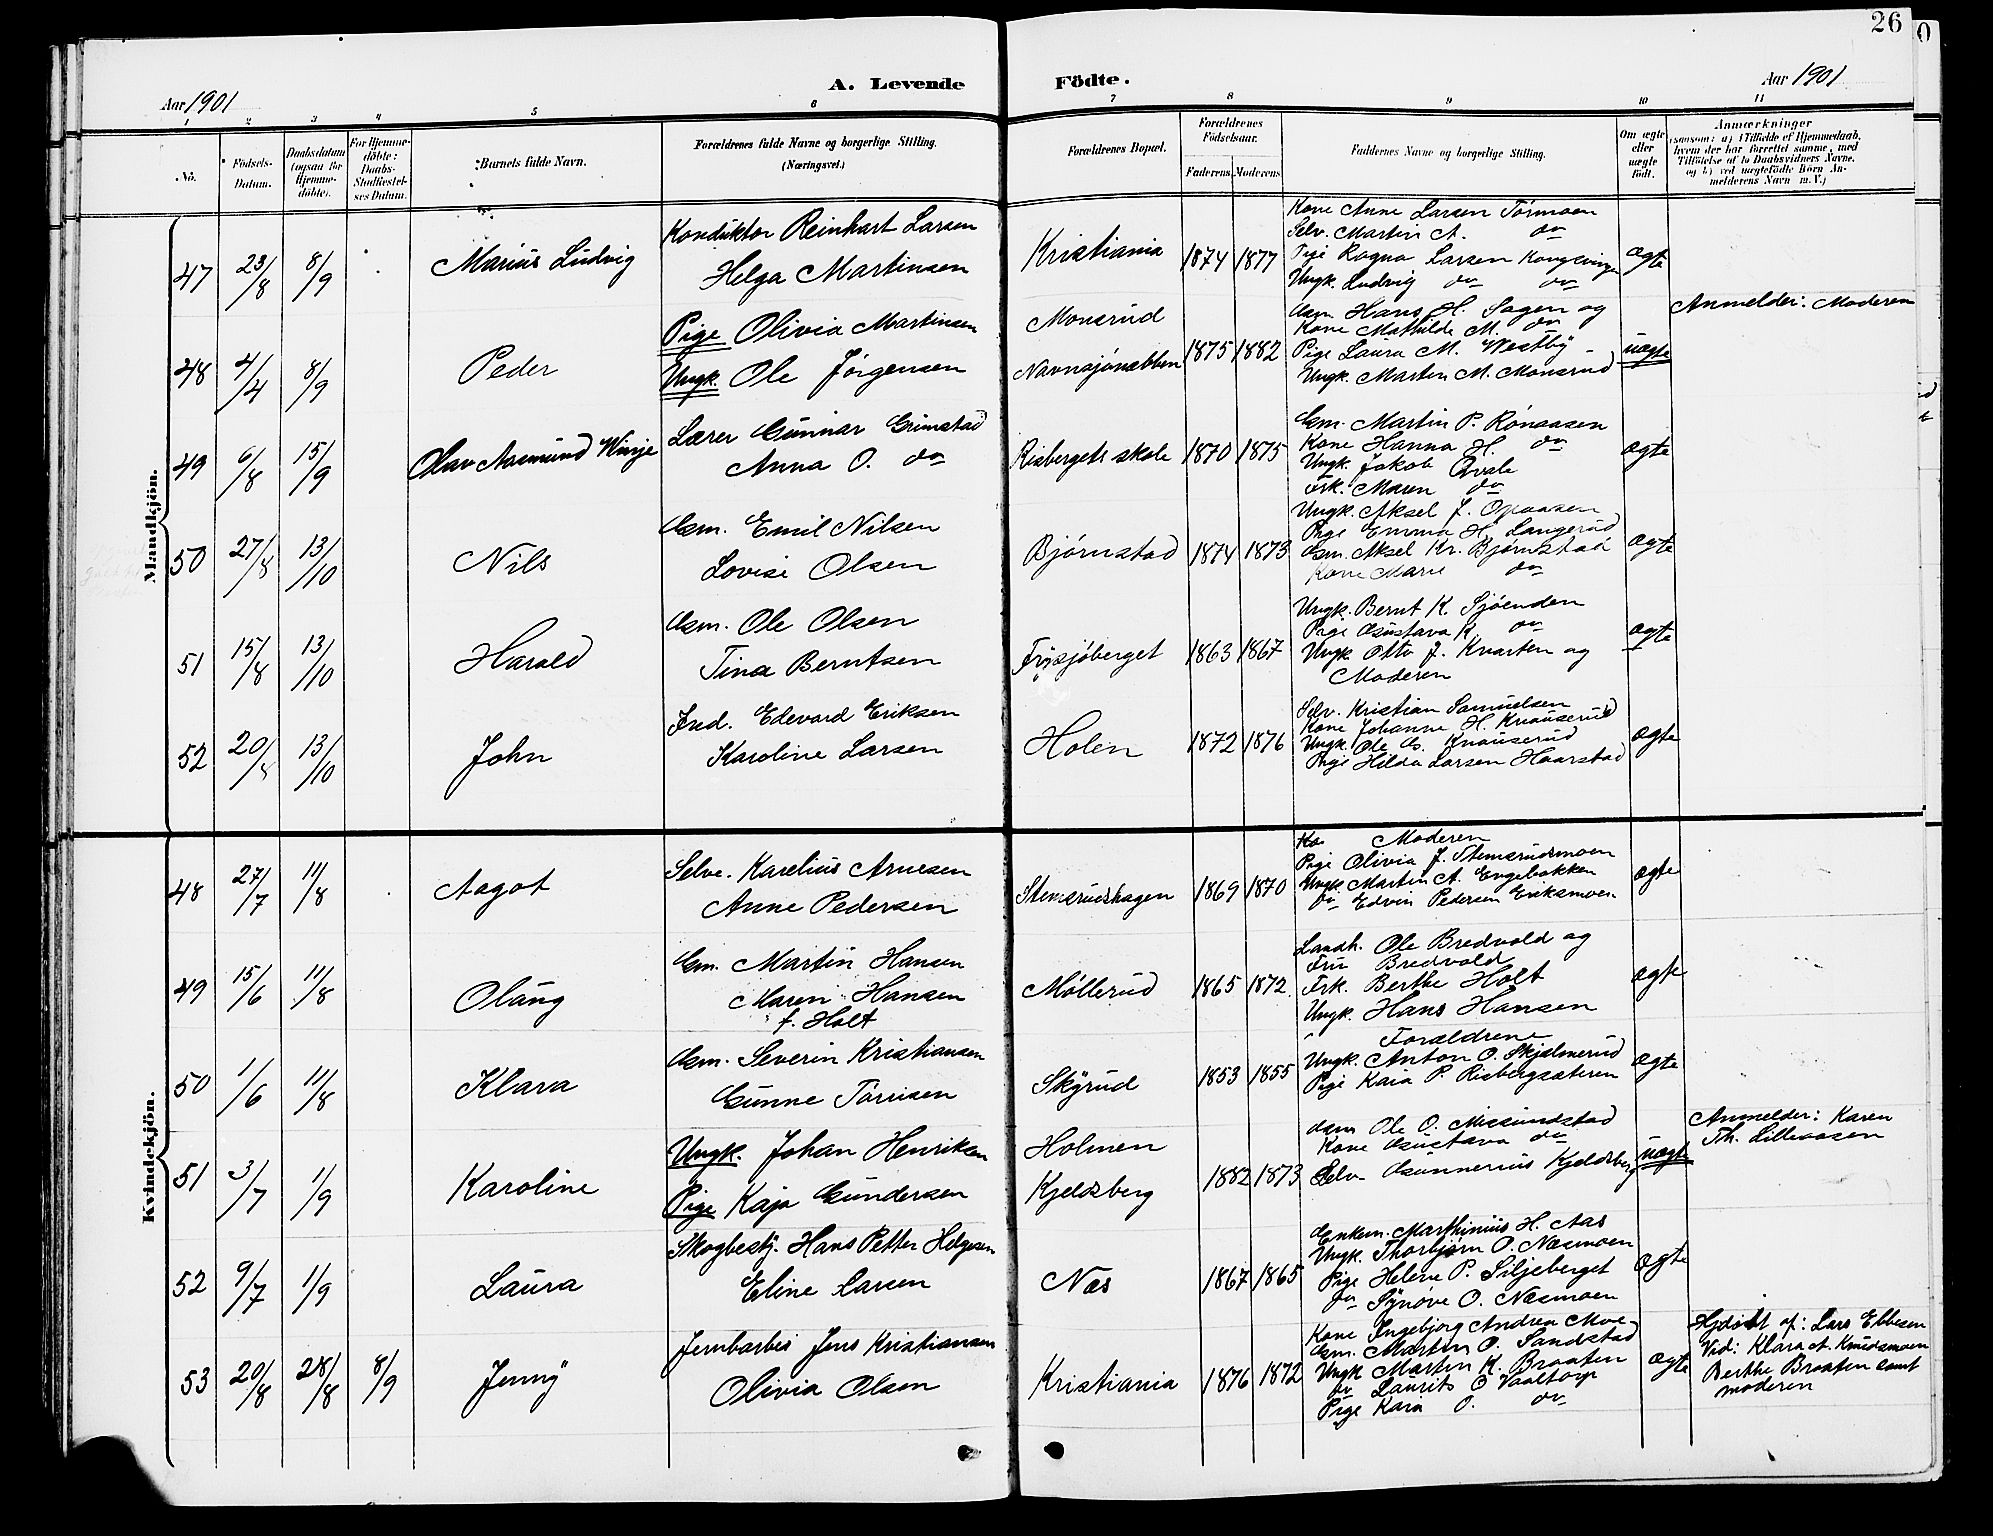 26
A. Levende Födte.
Aar 1901
Aar 1901
1 2 3 4 5 6 7 8 9 10 11
No.
Födsels-Datum.
Daabsdatum (ogsaa for Hjemme-döbte).
For Hjemme-döbte: Daabs-Stadfæstel-ses Datum.
Barnets fulde Navn.
Forældrenes fulde Navne og borgerlige Stilling. (Næringsvei.)
Forældrenes Bopæl.
Forældrenes Födselsaar.
Faderens Moderens
Faddernes Navne og borgerlige Stilling.
Om ægte eller uægte födt.
Anmærkninger
(saasom: a) i Tilfælde af Hjemmedaab,
hvem der har forrettet samme, med
Tilföielse af to Daabsvidners Navne.
og b) ved uægtefödte Börn An-
melderens Navn m. V.)
Mandkjön.
47 23/8 8/9 Marius Ludvig
Konduktør Reinhart Larsen
Helga Martinsen
Kristiania 1874 1877
Kone Anne Larsen Tórmoen
Selv. Martin A. do
Pige Ragna Larsen Kongsvinger
Ungk. Ludvig do do
ægte
48 4/4 8/9 Peder
Pige Olivia Martinsen
Ungk. Ole Jørgensen
Monsrud
Navnsjónabben 1875 1882
Gsm. Hans H. Sagen og
Kone Mathilde M. do
Pige Laura M. Westby
Ungk. Martin M. Monsrud
uægte
Anmelder: Moderen
49 6/8 15/9 Olav Aasmund Winje
Lærer Gunnar Grimstad
Anna O. do
Risbergets skole 1870 1875
Gm. Martin P. Rónaasen
Kone Hanna H. do
Ungk. Jakob Qvale
Frk. Maren do
ægte
50 27/8 13/10 Nils
Gsm. Emil Nilsen
Lovise Olsen
Bjørnstad 1874 1873
Ungk. Aksel J. Opaasen
Pige Emma H. Langerud
Gsm. Aksel Kr. Bjørnstad
Kone Marie do
ægte
51 15/8 13/10 Harald
Gsm. Ole Olsen
Tina Berntsen
Frysjøberget 1863 1867
Ungk. Bernt K. Sjøenden
Pige Gustava K. do
Ungk. Otto J. Kvarten og
Moderen
ægte
52 20/8 13/10 John
Ind. Edevard Eriksen
Karoline Larsen
Holen 1872 1876
Selv. Kristian Samuelsen
Kone Johanne H. Knauserud
Ungk. Ole G. Knauserud
Pige Hilda Larsen Haarstad
ægte
Kvindekjön.
48 27/7 11/8 Aagot
Selve. Karelius Arnesen
Anne Pedersen
Stemsrudshagen 1869 1870
Ko Moderen
Pige Olivia J. Stemsrudsmoen
Ungk. Martin A. Engebakken
do Edvin Pedersen Eriksmoen
ægte
49 15/6 11/8 Olaug
Gm. Martin Hansen
Maren Hansen
f. Holt
Møllerud 1865 1872
Landh. Ole Bredvold og
Fru Bredvold
Frk. Berthe Holt
Ungk. Hans Hansen
ægte
50 1/6 11/8 Klara
Gsm. Severin Kristiansen
Gunne Tórrisen
Skyrud 1853 1855
Forældrene
Ungk. Anton O. Skjælmerud
Pige Kaia P. Risbergsæteren
ægte
51 3/7 1/9 Karoline
Ungk. Johan Henriksen
Pige Kaja Gundersen
Holmen
Kjeldsberg 1882 1873
Gsm Ole O. Missundstad
Kone Gustava do
Selv Gunnerius Kjeldsberg
uægte
Anmelder: Karen
Th. Lilleaasen
52 9/7 1/9 Laura
Skogbesty. Hans Petter Helgesen
Eline Larsen
Næs 1867 1865
Enkem. Marthinius H. Aas
Ungk. Thorbjørn O. Næsmoen
Pige Helene P. Siljeberget
do Synøve O. Næsmoen
ægte
53 20/8 28/8 8/9 Jenny
Jernbarbei Jens Kristiansen
Olivia Olsen
Kristiania 1876 1872
Kone Ingebjorg Andrea Moe
Gsm. Morten O. Sandstad
Ungk Martin K. Braaten
do Laurits O. Vaaltorp
Pige Kaia O. do
ægte
Hjdøbt af: Lars Ebbesen
Vid: Klara A. Knudsmoen
Berthe Braaten samt
moderen